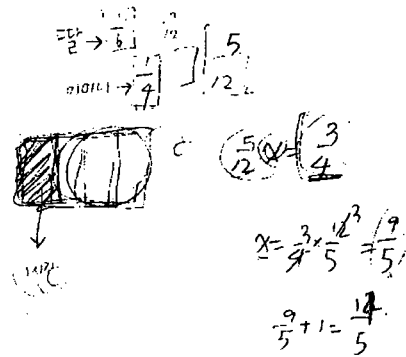 딸 → 1/6
어머니 → 1/4 ] 5/12
C 5/12 x = 3/4
x = 3/4 × 12/5 3 = 9/5
9/5 + 1 = 14/5